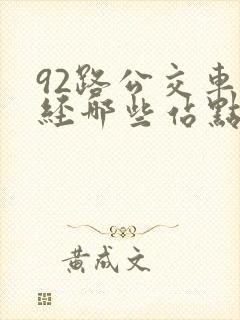 92路公交車
經那些佔點
黃成文